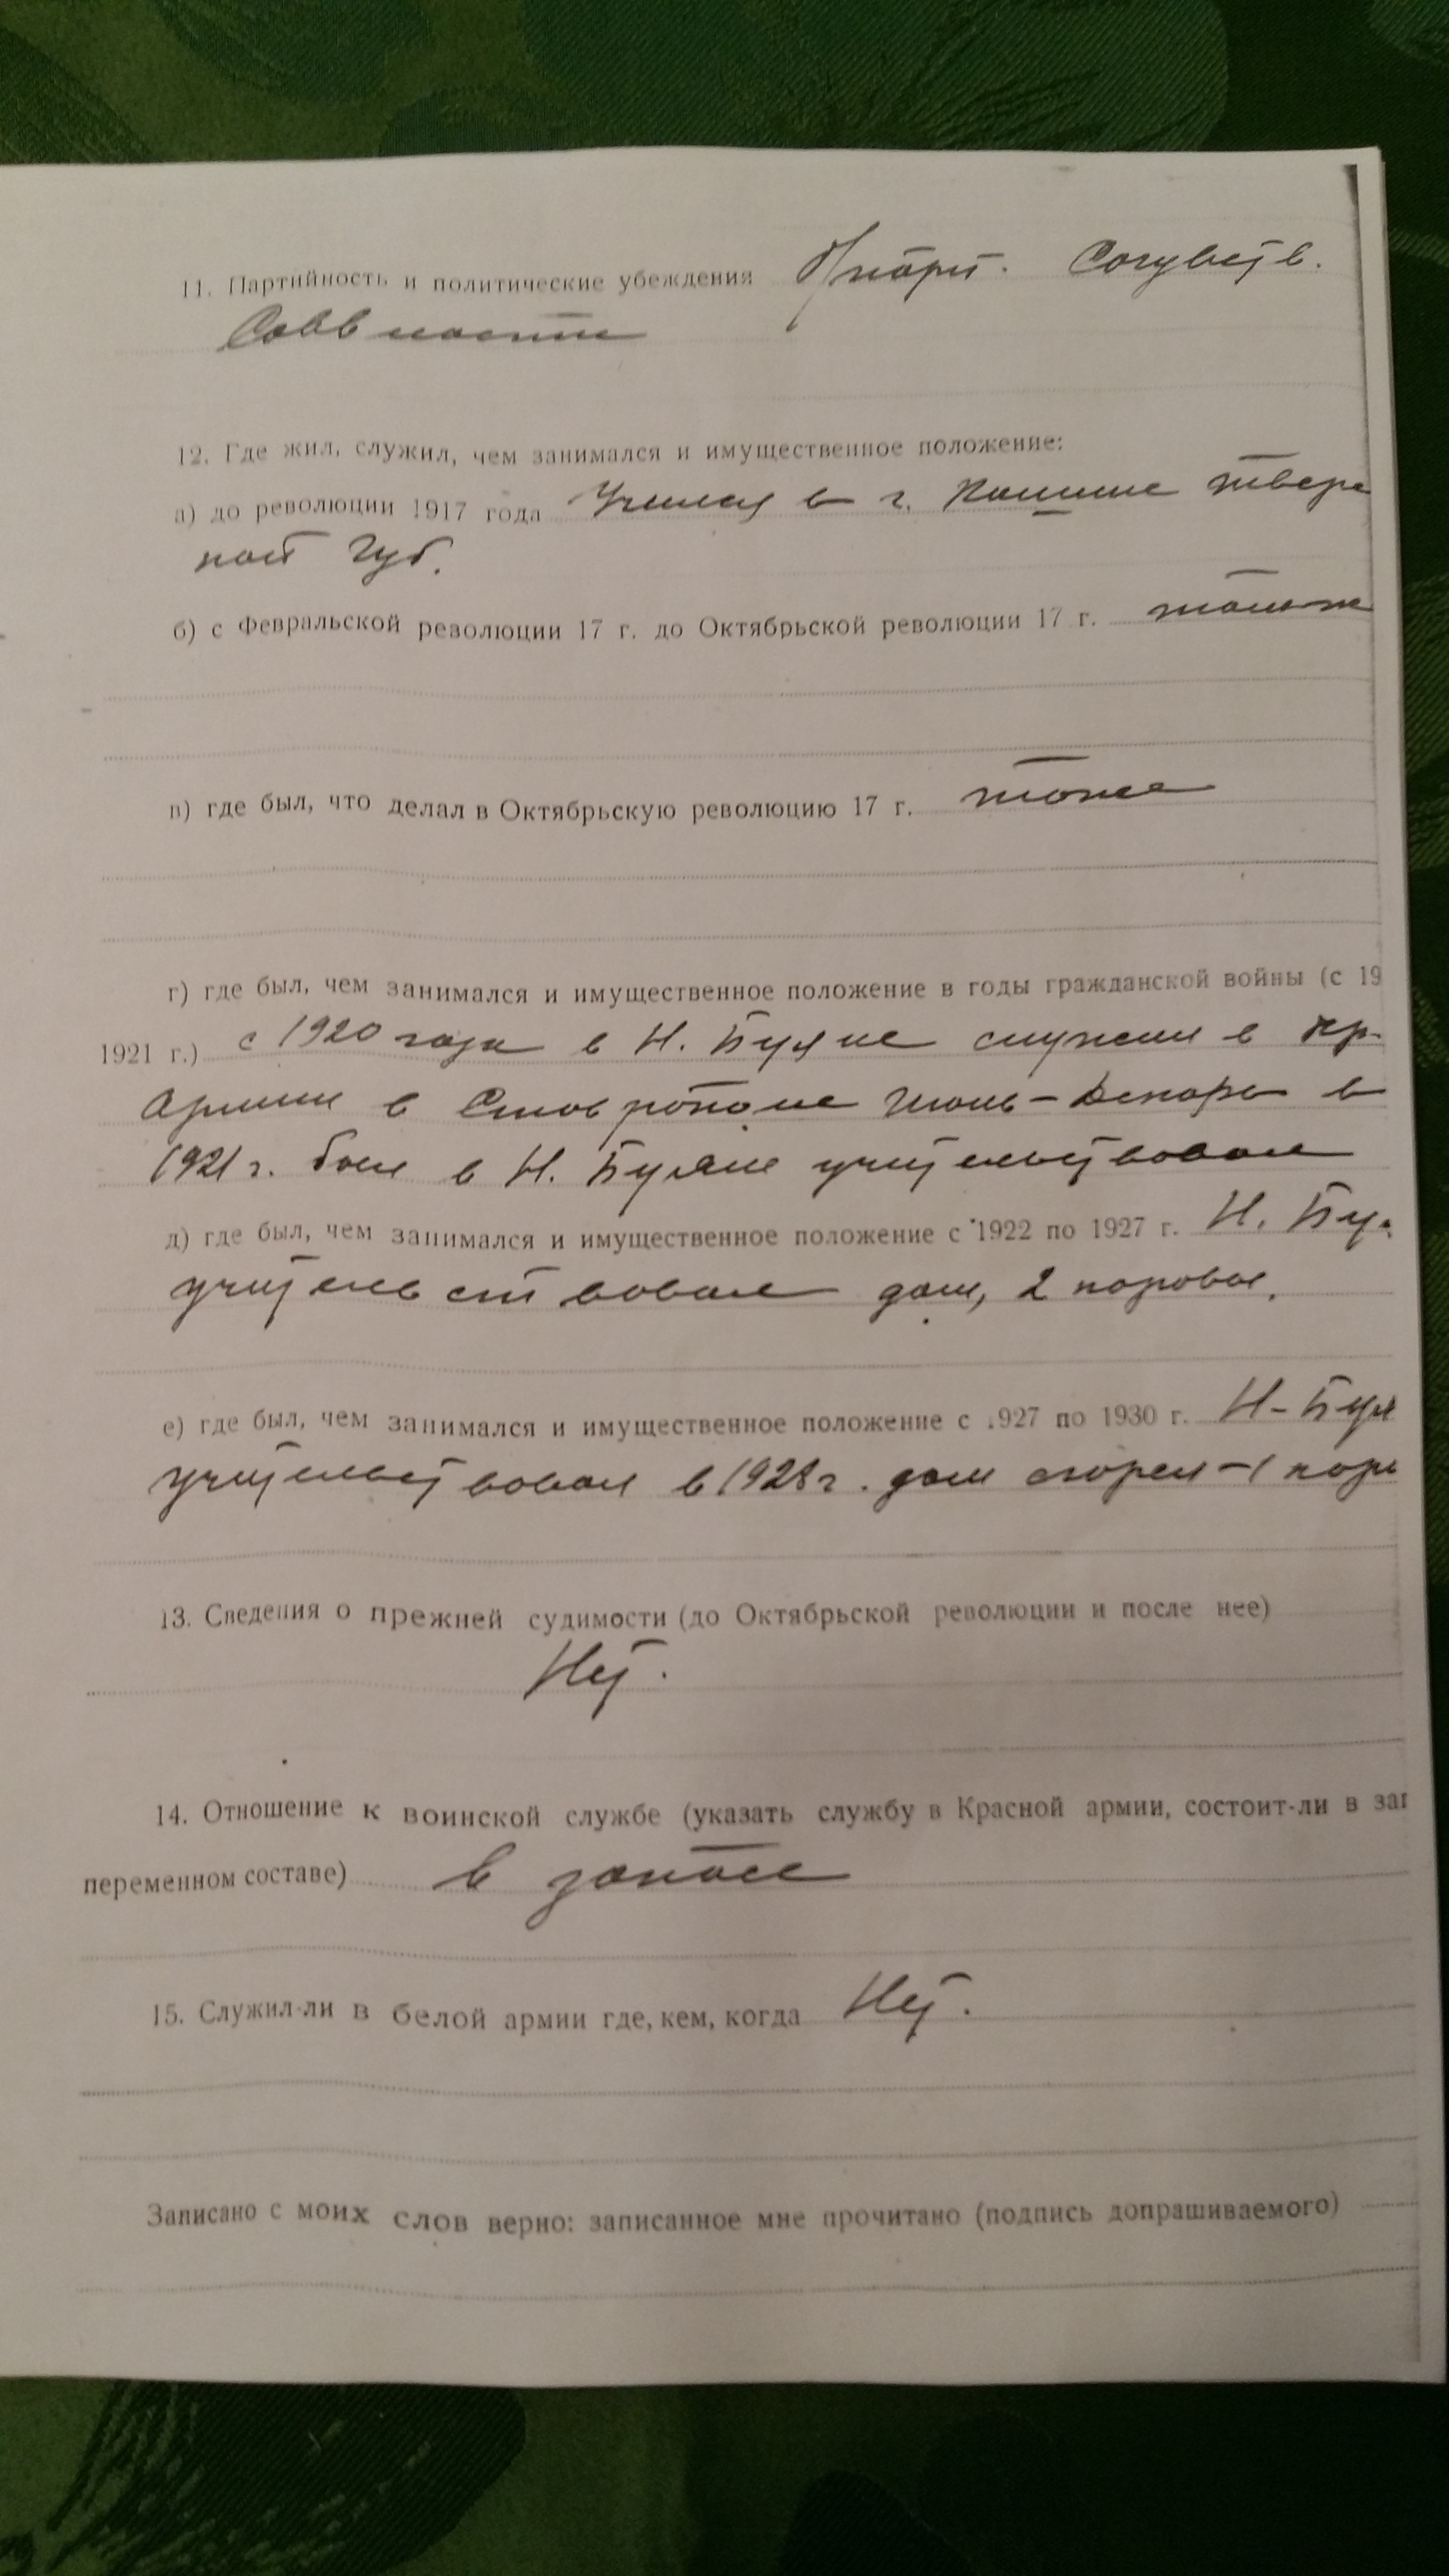 11. Партийность и политические убеждения Б/парт. Сочувств.
Соввласти
12. Где жил, служил, чем занимался и имущественное положение:
а) до революции 1917 года Учился в г. Кашине Твер
ской Губ.
б) с Февральской революции 17 г. до Октябрьской революции 17 г.
в) где был, что делал в Октябрьскую революцию 17 г. тоже
г) где был, чем занимался и имущественное положение в годы гражданской войны (с 19
1921 г.) с 1920 года в Н. Буяне служил в Кр.
Армии в Ставрополе Июнь-Декабрь в
1921 г. был в Н. Буяне учительствовал
д) где был, чем занимался и имущественное положение с 1922 по 1927 г. Н. Бу
учительствовал дом, 2 коровы.
е) где был, чем занимался и имущественное положение с 1927 по 1930 г. Н-Буя
учительствовал в 1928 г. дом сгорел-1 кор
13. Сведения о прежней судимости (до Октябрьской революции и после нее)
Нет.
14. Отношение к воинской службе (указать службу в Красной армии, состоит-ли в зап
переменном составе) в запасе
15. Служил-ли в белой армии где, кем, когда Нет.
Записано с моих слов верно: записанное мне прочитано (подпись допрашиваемого)